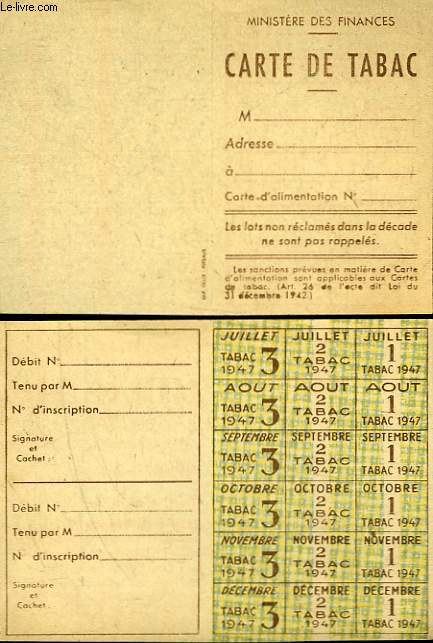 Le-livre.com
MINISTÈRE DES FINANCES
CARTE DE TABAC
M
Adresse
à
Carte d'alimentation N°
Les lots non réclamés dans la décade
ne sont pas rappelés.
Les sanctions prévues en matière de Carte
d'alimentation sont applicables aux Cartes
de tabac. (Art. 26 de l'acte dit Loi du
31 décembre 1942.)
Débit N°
Tenu par M
N° d'inscription
Signature
et
Cachet :
Débit N°
Tenu par M
N° d'inscription
Signature
et
Cachet :
JUILLET JUILLET JUILLET
TABAC 3 2 1
1947 TABAC TABAC 1947
1947
AOUT AOUT AOUT
TABAC 3 2 1
1947 TABAC TABAC 1947
1947
SEPTEMBRE SEPTEMBRE SEPTEMBRE
TABAC 3 2 1
1947 TABAC TABAC 1947
1947
OCTOBRE OCTOBRE OCTOBRE
TABAC 3 2 1
1947 TABAC TABAC 1947
1947
NOVEMBRE NOVEMBRE NOVEMBRE
TABAC 3 2 1
1947 TABAC TABAC 1947
1947
DÉCEMBRE DÉCEMBRE DÉCEMBRE
TABAC 3 2 1
1947 TABAC TABAC 1947
1947